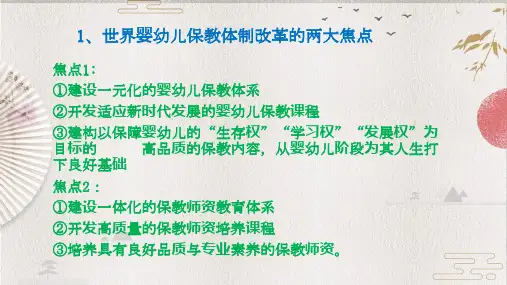 1、世界婴幼儿保教体制改革的两大焦点
焦点1：
①建设一元化的婴幼儿保教体系
②开发适应新时代发展的婴幼儿保教课程
③建构以保障婴幼儿的“生存权”“学习权”“发展权”为
目标的 高品质的保教内容，从婴幼儿阶段为其人生打
下良好基础
焦点2：
①建设一体化的保教师资教育体系
②开发高质量的保教师资培养课程
③培养具有良好品质与专业素养的保教师资。